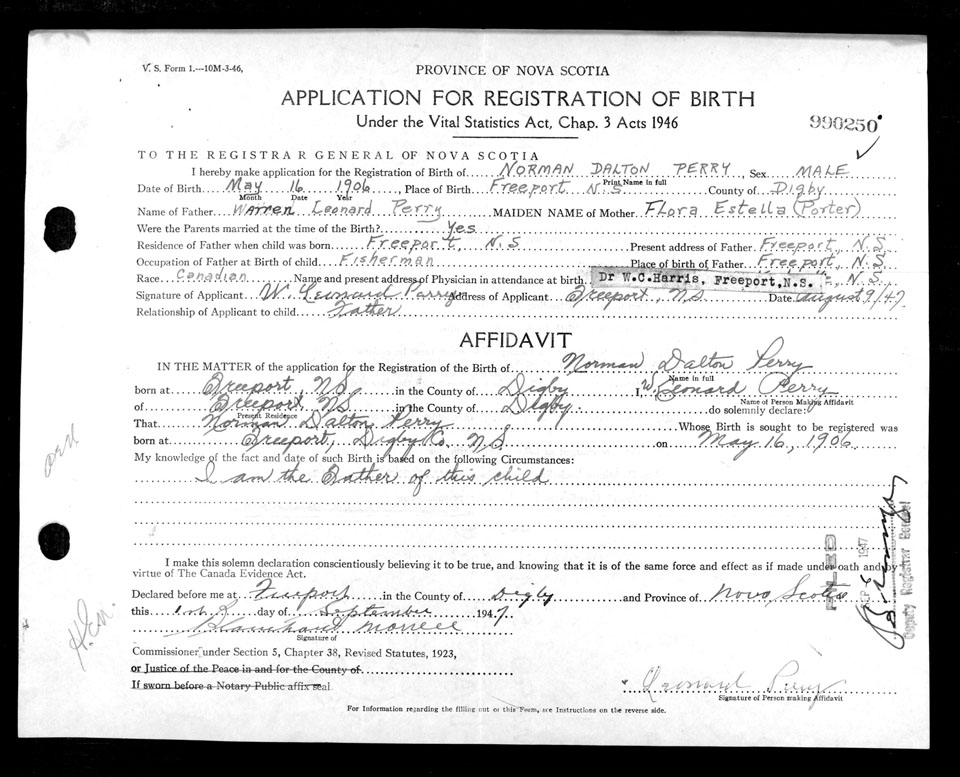 V. S. Form 1.—10M-3-46,
PROVINCE OF NOVA SCOTIA
APPLICATION FOR REGISTRATION OF BIRTH
Under the Vital Statistics Act, Chap. 3 Acts 1946
990250
TO THE REGISTRAR GENERAL OF NOVA SCOTIA
I hereby make application for the Registration of Birth of NORMAN DALTON PERRY, Sex MALE
Print Name in full
Date of Birth May 16 1906, Place of Birth Freeport N.S County of Digby
Month Date Year
Name of Father Warren Leonard Perry MAIDEN NAME of Mother Flora Estella (Porter)
Were the Parents married at the time of the Birth? Yes
Residence of Father when child was born Freeport, N.S Present address of Father Freeport, N.S
Occupation of Father at Birth of child Fisherman Place of birth of Father Freeport, N.S
Race Canadian Name and present address of Physician in attendance at birth Dr W.C.Harris, Freeport,N.S. N.S
Signature of Applicant W. Leonard Perry Address of Applicant Freeport, N.S Date August 9/47
Relationship of Applicant to child Father
AFFIDAVIT
IN THE MATTER of the application for the Registration of the Birth of Norman Dalton Perry
Name in full
born at Freeport, N.S, in the County of Digby I, W. Leonard Perry
Name of Person Making Affidavit
of Freeport N.S in the County of Digby. do solemnly declare:
Present Residence
That Norman Dalton Perry Whose Birth is sought to be registered was
born at Freeport, Digby Co. N.S. on May 16, 1906
My knowledge of the fact and date of such Birth is based on the following Circumstances:
I am the Father of this child
I make this solemn declaration conscientiously believing it to be true, and knowing that it is of the same force and effect as if made under oath and by
virtue of The Canada Evidence Act.
Declared before me at Freeport in the County of Digby and Province of Nova Scotia
this day of September 1947.
Signature of
Commissioner under Section 5, Chapter 38, Revised Statutes, 1923,
or Justice of the Peace in and for the County of
If sworn before a Notary Public affix seal
Leonard Perry
Signature of Person making Affidavit
For Information regarding the filling out of this Form, see Instructions on the reverse side.
FILED
SEP 6 1947
Deputy Registrar General